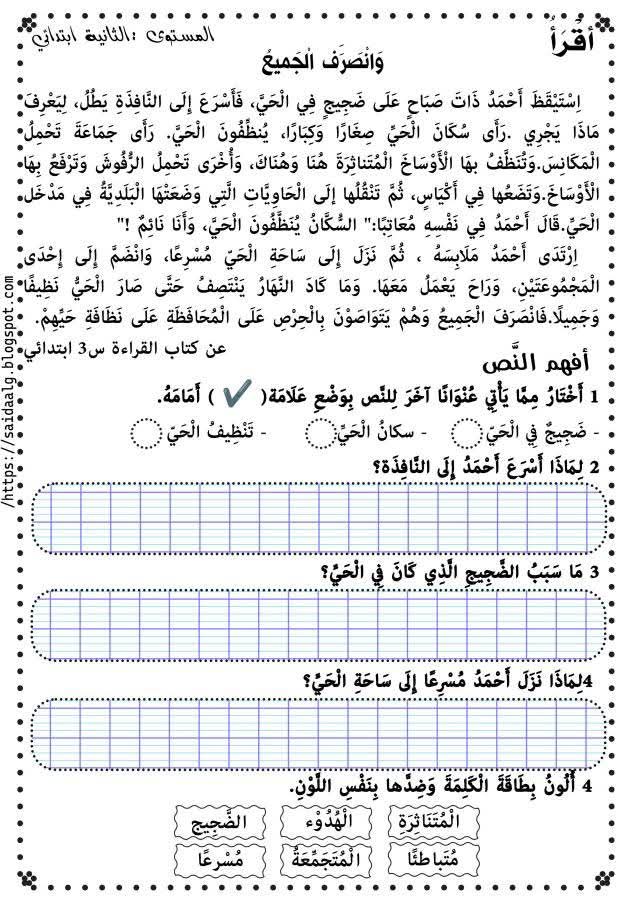 أقْرَأُ
المستوى :الثانية ابتدائي
وَانْصَرَفَ الْجَمِيعُ
اِسْتَيْقَظَ أَحْمَدُ ذَاتَ صَبَاحٍ عَلَى ضَجِيجٍ فِي الْحَيِّ، فَأَسْرَعَ إِلَى النَّافِذَةِ يَطُلُ، لِيَعْرِفَ
مَاذَا يَجْرِي .رَأَى سُكَانَ الْحَيِّ صِغَارًا وَكِبَارًا، يُنظِّفُونَ الْحَيَّ. رَأَى جَمَاعَةً تَحْمِلُ
الْمَكَانِسَ.وَتُنَظِّفُ بهَا الْأَوْسَاخَ الْمُتَناثِرَةَ هُنَا وَهُنَاكَ، وَأُخْرَى تَحْمِلُ الرُّفُوشَ وَتَرْفَعُ بِهَا
الْأَوْسَاخَ.وَتَضَعُها فِي أَكْيَاسٍ، ثُمَّ تَنْقُلُها إِلَى الْحَاوِيَّاتِ الَّتِي وَضَعَتْهَا الْبَلَدِيَّةُ فِي مَدْخَلِ
الْحَيِّ.قَالَ أَحْمَدُ فِي نَفْسِهِ مُعَاتِبًا:" السُّكَّانُ يُنَظِّفُونَ الْحَيَّ، وَأَنَا نَائِمٌ !"
اِرْتَدَى أَحْمَدُ مَلَابِسَهُ ، ثُمَّ نَزَلَ إِلَى سَاحَةِ الْحَيِّ مُسْرِعًا، وَانْضَمَّ إِلَى إِحْدَى
الْمَجْمُوعَتَيْنِ، وَرَاحَ يَعْمَلُ مَعَهَا. وَمَا كَادَ النَّهَارُ يَنْتَصِفُ حَتَّى صَارَ الْحَيُّ نَظِيفًا
وَجَمِيلًا.فَانْصَرَفَ الْجَمِيعُ وَهُمْ يَتَوَاصَوْنَ بِالْحِرْصِ عَلَى الْمُحَافَظَةِ عَلَى نَظَافَةِ حَيِّهِمْ.
عن كتاب القراءة س3 ابتدائي
أفهم النَّص
1 أَخْتَارُ مِمَّا يَأْتِي عُنْوَانًا آخَرَ لِلنَّص بِوَضْعِ عَلَامَة( ✔ ) أَمَامَهُ.
- ضَجِيجٌ فِي الْحَيِّ - سكانُ الْحَيِّ: - تَنْظِيفُ الْحَيّ
2 لِمَاذَا أَسْرَعَ أَحْمَدُ إِلَى النَّافِذَة؟
3 مَا سَبَبُ الضَّجِيجِ الَّذِي كَانَ فِي الْحَيِّ؟
4لِمَاذَا نَزَلَ أَحْمَدُ مُسْرِعًا إِلَى سَاحَةِ الْحَيِّ؟
4 أُلَونُ بِطَاقَةَ الْكَلِمَةَ وَضِدَّها بِنَفْسِ اللَّوْنِ.
الْمُتَنَاثِرَةِ الْهُدُوْء الضَّجِيج
مُتَباطئًا الْمُتَجَمِّعَةُ مُسْرعًا
/https://saidaalg.blogspot.com